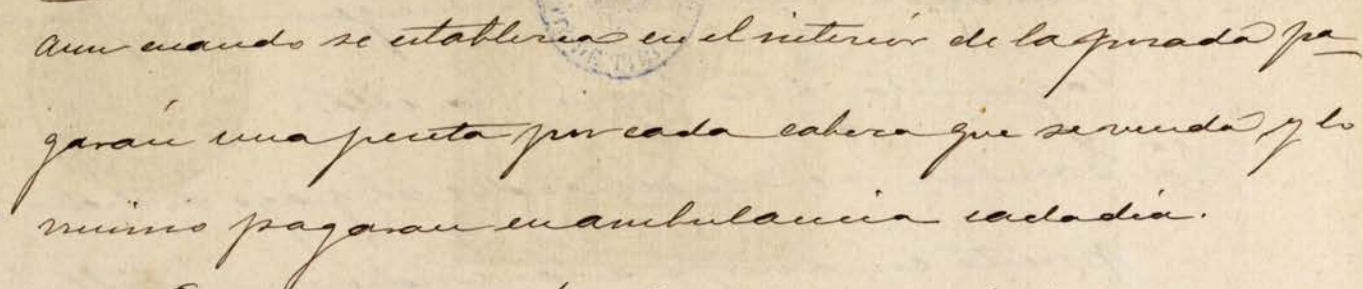 aun cuando se establezca en el interior de la posada pa-
garán una peseta por cada cabeza que se venda, y lo
mismo pagaran en ambulancia cada dia.